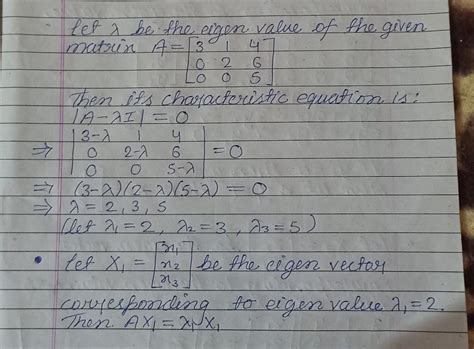 Let λ be the eigen value of the given
matrix A = [3 1 4
0 2 6
0 0 5]
Then its characteristic equation is:
|A-λI| = 0
⇒ |3-λ 1 4
0 2-λ 6
0 0 5-λ| = 0
⇒ (3-λ)(2-λ)(5-λ) = 0
⇒ λ = 2, 3, 5
(let λ1 = 2, λ2 = 3, λ3 = 5)
• Let X1 = [x1
x2
x3] be the eigen vector
corresponding to eigen value λ1 = 2.
Then AX1 = λ1X1